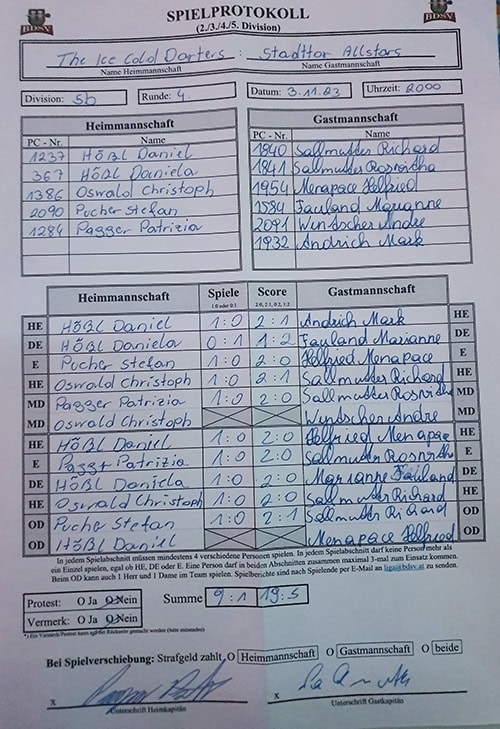 BDSV SPIELPROTOKOLL BDSV
(2./3./4./5. Division)
The Ice Cold Darters : Stadttor Allstars
Name Heimmannschaft Name Gastmannschaft
Division: 5b Runde: 4. Datum: 3.11.23 Uhrzeit: 2000
Heimmannschaft Gastmannschaft
PC - Nr. Name PC - Nr. Name
1237 Hößl Daniel 1940 Sallmutter Richard
367 Hößl Daniela 1841 Sallmutter Roswitha
1386 Oswald Christoph 1954 Menapace Helfried
2090 Pucher Stefan 1584 Fauland Marianne
1284 Pagger Patrizia 2091 Wintscher Andre
1932 Andrich Mark
Heimmannschaft Spiele Score Gastmannschaft
1:0 oder 0:1 2:0, 2:1, 0:2, 1:2
HE Hößl Daniel 1:0 2:1 Andrich Mark HE
DE Hößl Daniela 0:1 1:2 Fauland Marianne DE
E Pucher Stefan 1:0 2:0 Helfried Menapace E
HE Oswald Christoph 1:0 2:1 Sallmutter Richard HE
MD Pagger Patrizia 1:0 2:0 Sallmutter Roswitha MD
MD Oswald Christoph Wintscher Andre MD
HE Hößl Daniel 1:0 2:0 Helfried Menapace HE
E Pagger Patrizia 1:0 2:0 Sallmutter Roswitha E
DE Hößl Daniela 1:0 2:0 Marianne Fauland DE
HE Oswald Christoph 1:0 2:0 Sallmutter Richard HE
OD Pucher Stefan 1:0 2:1 Sallmutter Richard OD
OD Hößl Daniel Menapace Helfried OD
In jedem Spielabschnitt müssen mindestens 4 verschiedene Personen spielen. In jedem Spielabschnitt darf keine Person mehr als
ein Einzel spielen, egal ob HE, DE oder E. Eine Person darf in beiden Abschnitten zusammen maximal 3-mal zum Einsatz kommen.
Beim OD kann auch 1 Herr und 1 Dame im Team spielen. Spielberichte sind nach Spielende per E-Mail an liga@bdsv.at zu senden.
Protest: O Ja O Nein Summe 9:1 19:5
Vermerk: O Ja O Nein
*) Ein Vermerk/Protest kann auf der Rückseite gemacht werden (bitte ankreuzen)
Bei Spielverschiebung: Strafgeld zahlt O Heimmannschaft O Gastmannschaft O beide
x x
Unterschrift Heimkapitän Unterschrift Gastkapitän